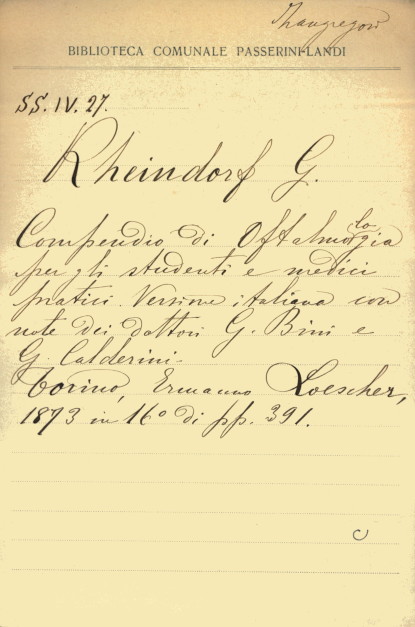 BIBLIOTECA COMUNALE PASSERINI-LANDI
SS. IV. 27.
Rheindorf G.
Compendio di Oftalmologia
per gli studenti e medici
pratici. Versione italiana con
note dei dottori G. Bini e
G. Calderini.
Torino, Ermanno Loescher,
1873 in 16° di pp. 391.